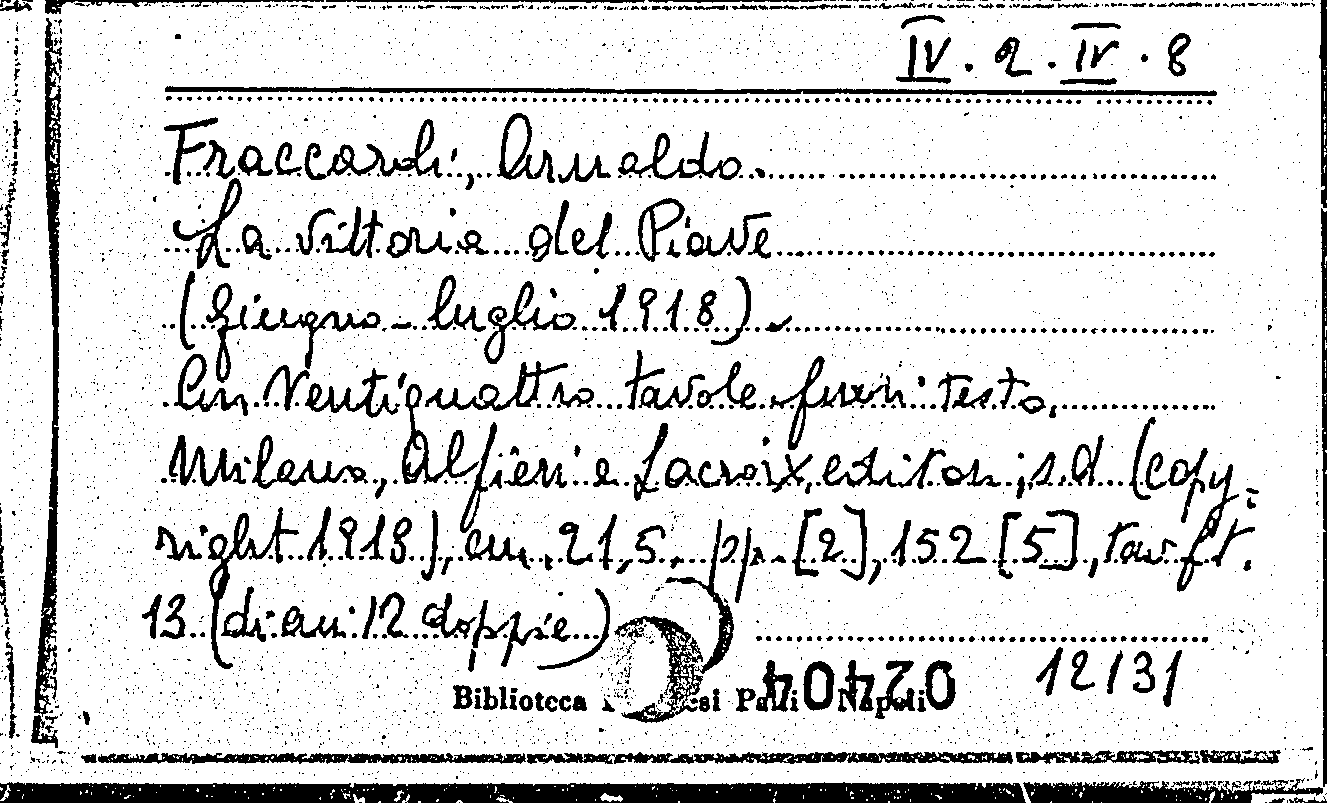 IV. 2. IV. 8
Fraccaroli, Arnaldo.
La vittoria del Piave
(giugno - luglio 1918).
Con ventiquattro tavole fuori testo.
Milano, Alfieri e Lacroix, editori, s.d. (copy=
right 1919), cm. 21,5. pp. [2], 152 [5], tav. f.t.
13 (di cui 12 doppie)
Biblioteca Napoli
02404
12131